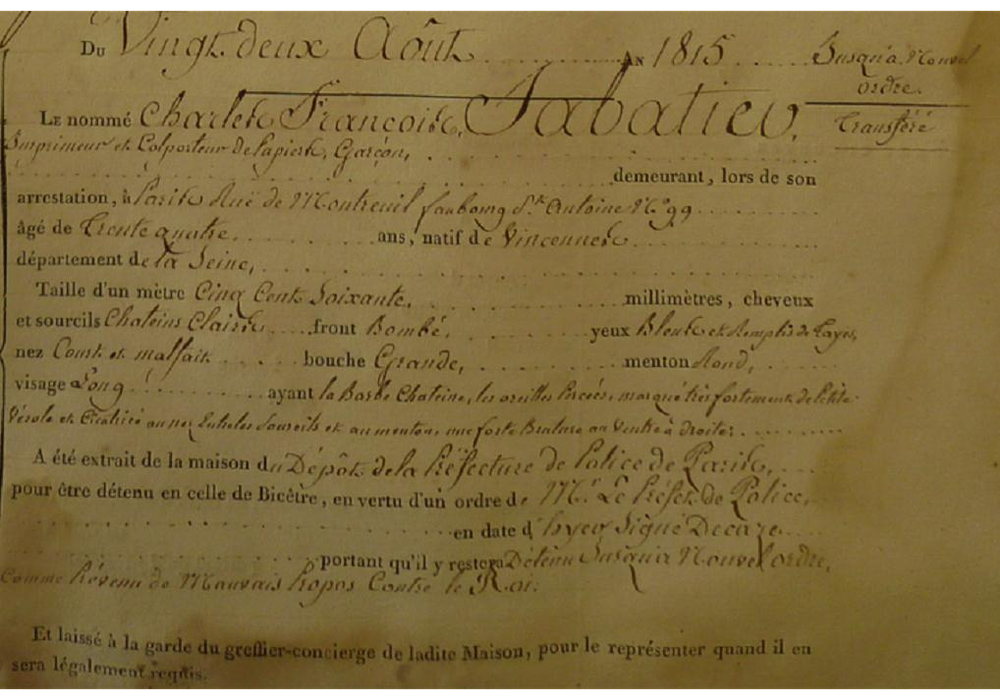 Du Vingt deux Août An 1815
Jusqu'à Nouvel
ordre.
Transféré
Le nommé Charles François Sabatier,
Imprimeur et Colporteur de papiers, Garçon,
demeurant, lors de son
arrestation, à Paris Ruë de Montreuil faubourg St. Antoine No. 99
âgé de Trente quatre ans, natif de Vincennes
département de la Seine,
Taille d'un mètre Cinq Cents Soixante, millimètres, cheveux
et sourcils Chateins Clairs front Bombé, yeux Bleus et Remplis de Tayes,
nez Court et malfait bouche Grande, menton Rond,
visage Long ayant la Barbe Chateine, les oreilles Percées, marqué très fortement de petite
Vérole et Cicatrice au nez Entre les Sourcils et au menton, une forte Brulure au Ventre à droite.
A été extrait de la maison du Dépôt de la Préfecture de Police de Paris,
pour être détenu en celle de Bicêtre, en vertu d'un ordre de Mr. Le Préfet de Police,
en date d'hyer Signé Decaze
portant qu'il y restera Détenu Jusqu'à Nouvel ordre,
Comme Prévenu de Mauvais Propos Contre le Roi.
Et laissé à la garde du greffier-concierge de ladite Maison, pour le représenter quand il en
sera légalement requis.